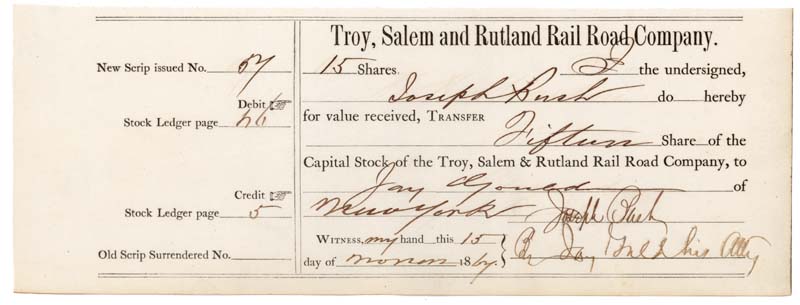 Troy, Salem and Rutland Rail Road Company.
New Scrip issued No. 57
15 Shares. I the undersigned,
Joseph Bush do hereby
Debit
Stock Ledger page
for value received, TRANSFER
Fifteen Share of the
Capital Stock of the Troy, Salem & Rutland Rail Road Company, to
Credit
Jay Gould of
Stock Ledger page 5
New York Joseph Bush
WITNESS, my hand this 15
By Jay Gould his Atty
Old Scrip Surrendered No.
day of 186